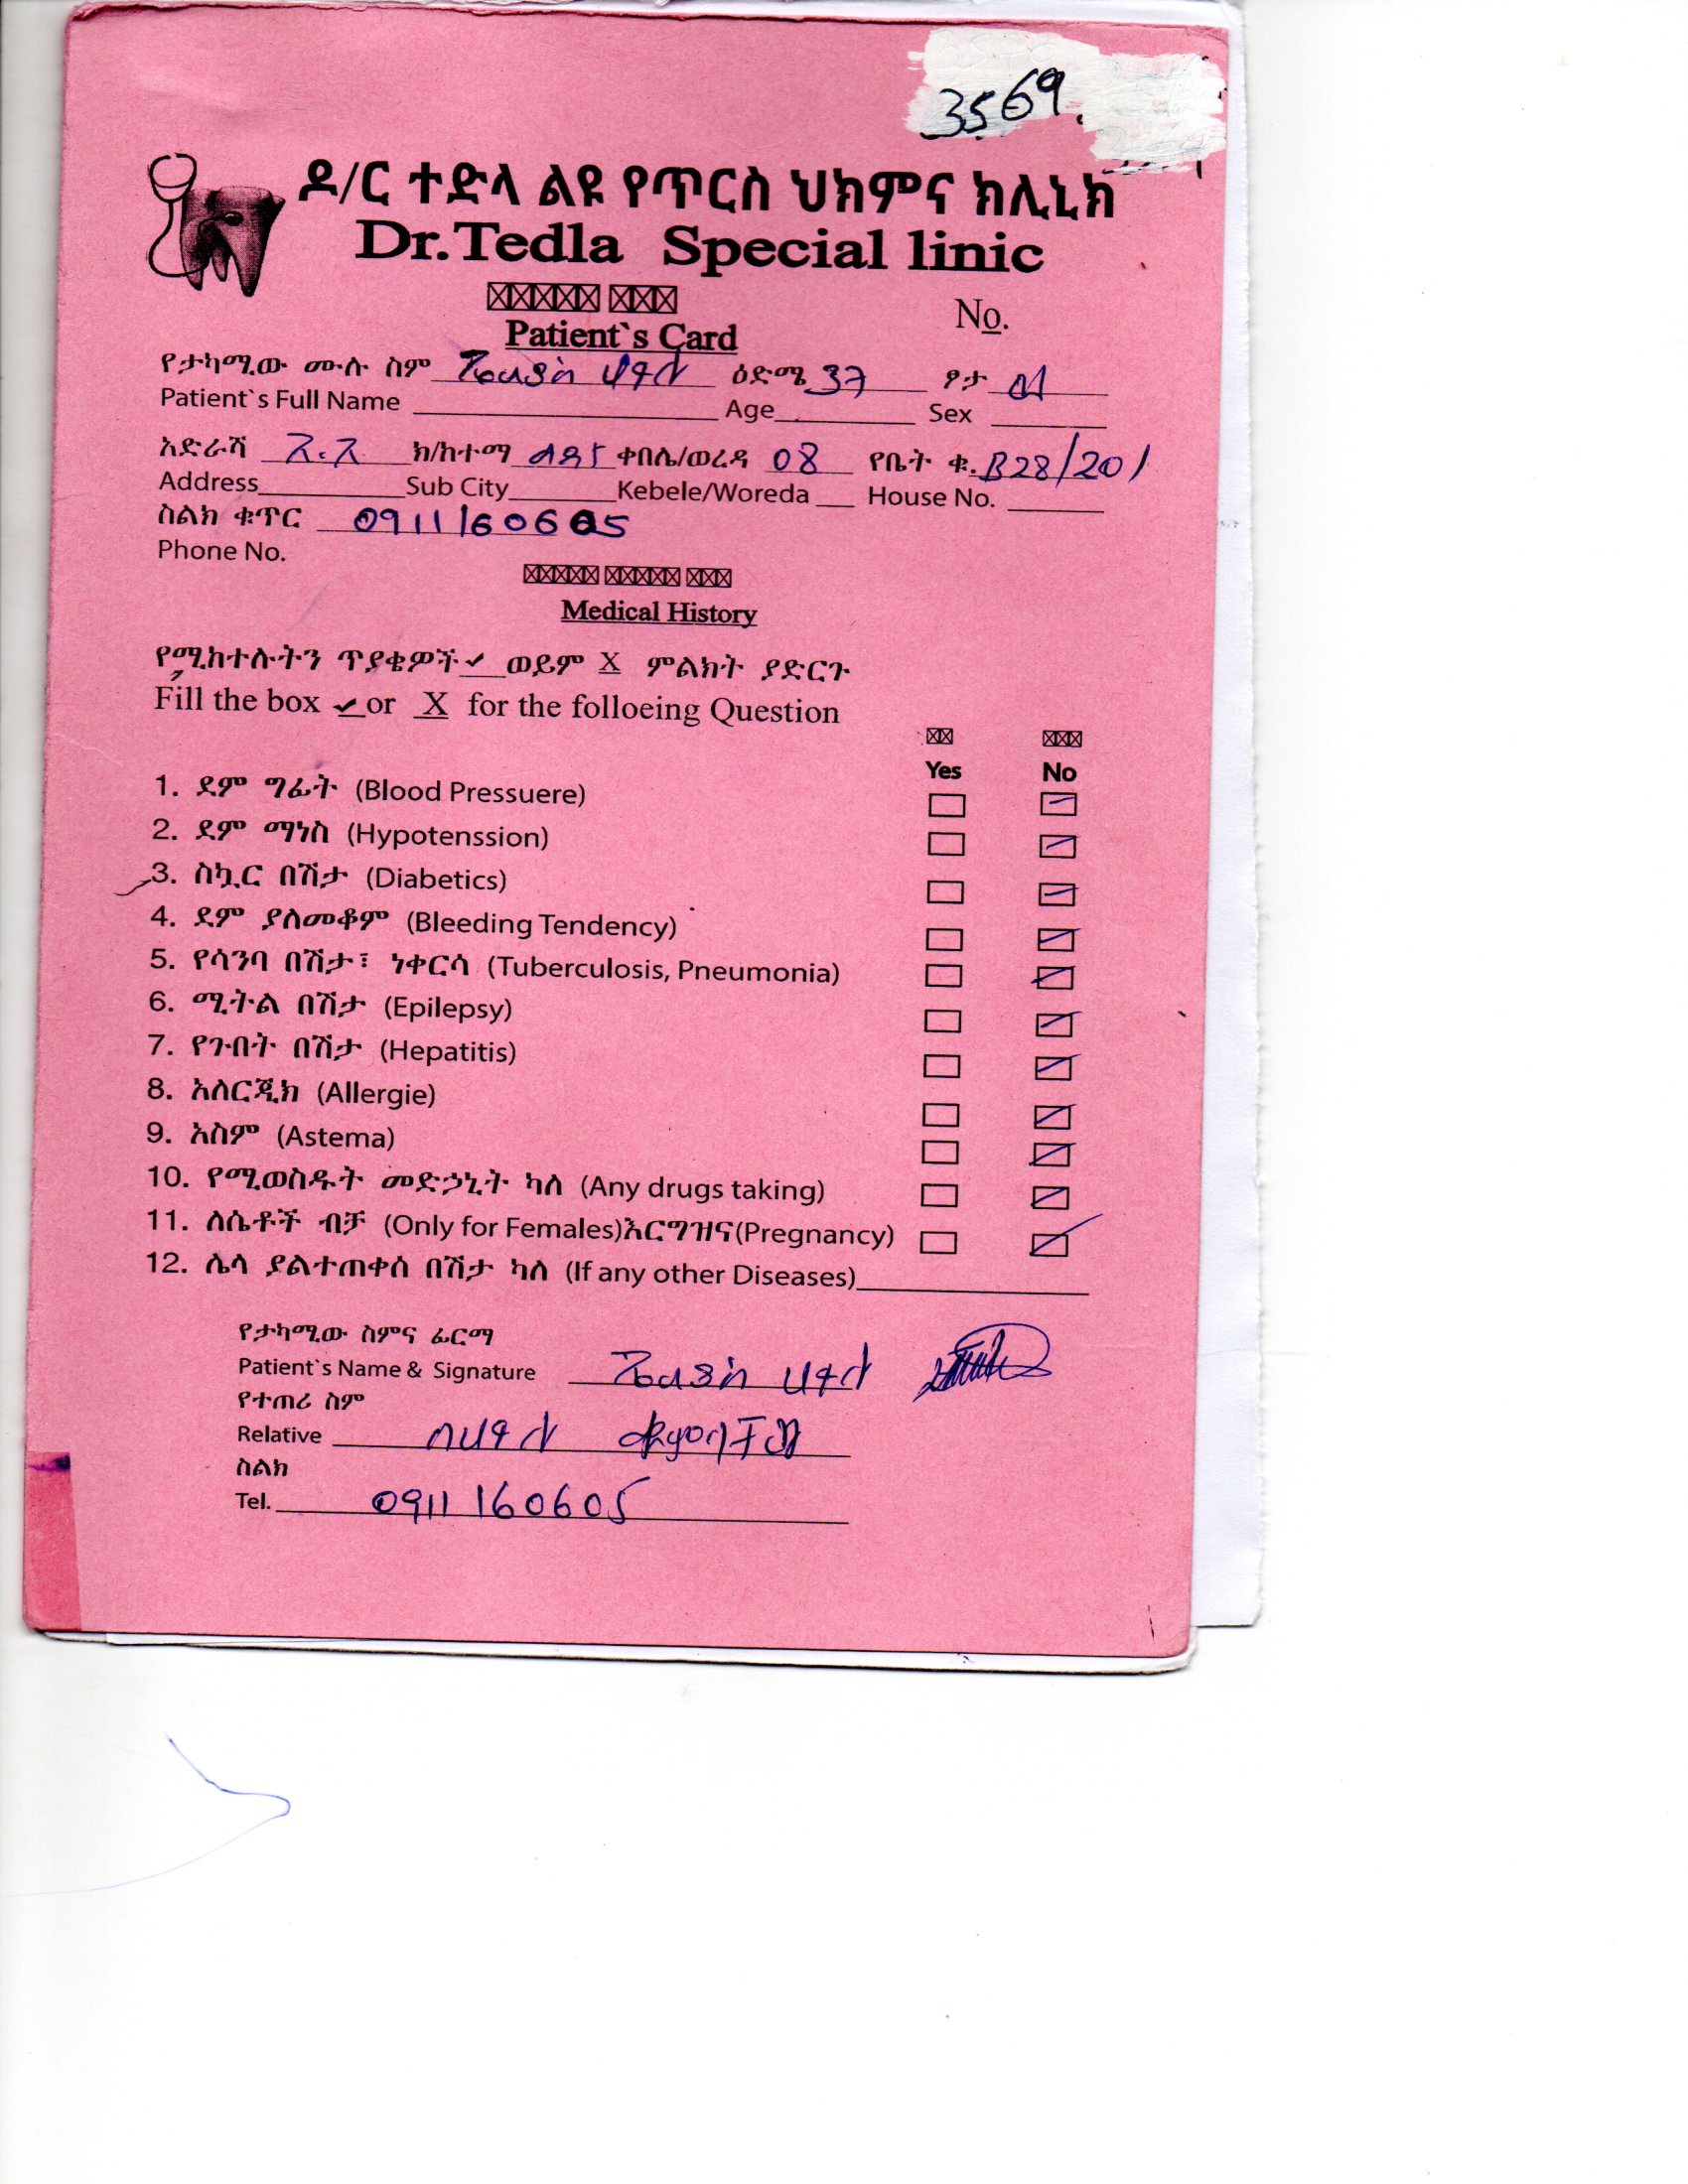 3569
ዶ/ር ተድላ ልዩ የጥርስ ህክምና ክሊኒክ
Dr.Tedla Special linic
No.
Patient`s Card
የታካሚው ሙሉ ስም ዕድሜ 37 ፆታ
Patient`s Full Name Age Sex
አድራሻ ክ/ከተማ ቀበሌ/ወረዳ 08 የቤት ቁ. B28/201
Address Sub City Kebele/Woreda House No.
ስልክ ቁጥር 0911160605
Phone No.
Medical History
የሚከተሉትን ጥያቄዎች ✓ ወይም X ምልክት ያድርጉ
Fill the box ✓ or X for the folloeing Question
Yes No
1. ደም ግፊት (Blood Pressuere)
2. ደም ማነስ (Hypotenssion)
3. ስኳር በሽታ (Diabetics)
4. ደም ያለመቆም (Bleeding Tendency)
5. የሳንባ በሽታ፣ ነቀርሳ (Tuberculosis, Pneumonia)
6. ሚትል በሽታ (Epilepsy)
7. የጉበት በሽታ (Hepatitis)
8. አለርጂክ (Allergie)
9. አስም (Astema)
10. የሚወስዱት መድኃኒት ካለ (Any drugs taking)
11. ለሴቶች ብቻ (Only for Females)እርግዝና(Pregnancy)
12. ሌላ ያልተጠቀሰ በሽታ ካለ (If any other Diseases)
የታካሚው ስምና ፊርማ
Patient`s Name & Signature
የተጠሪ ስም
Relative
ስልክ
Tel. 0911160605